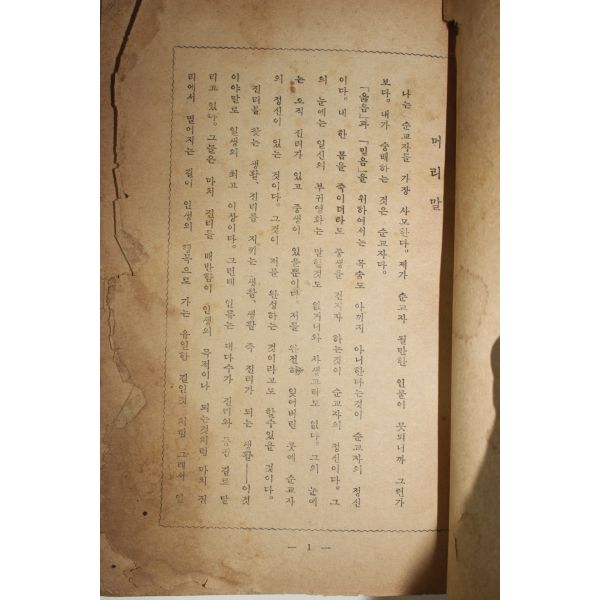 머리말
나는 순교자를 가장 사모한다. 제가 순교자 될만한 인물이 못되니까 그런가
보다. 내가 숭배하는 것은 순교자다.
「옳음」과 「믿음」을 위하여서는 목숨도 아끼지 아니한다는것이 순교자의 정신
이다. 내 한 몸을 죽이더라도 중생을 건지자 하는것이 순교자의 정신이다. 그
의 눈에는 일신의 부귀영화는 말할것도 없거니와 사생고락도 없다. 그의 눈에
는 오직 진리가 있고 중생이 있을뿐이다. 저를 완전히 잊어버린 곳에 순교자
의 정신이 있는 것이다. 그것이 저를 완성하는 것이라고도 할수있을 것이다.
진리를 찾는 생활, 진리를 지키는 생활, 생활 즉 진리가 되는 생활——이것
이야말로 인생의 최고 이상이다. 그런데 인류는 대다수가 진리와 등진 길로 달
리고 있다. 그들은 마치 진리를 배반함이 인생의 목적이나 되는것처럼 마의 진
리에서 멀어지는 길이 인생의 행복으로 가는 유일한 길인것 처럼 그래서 인
— 1 —